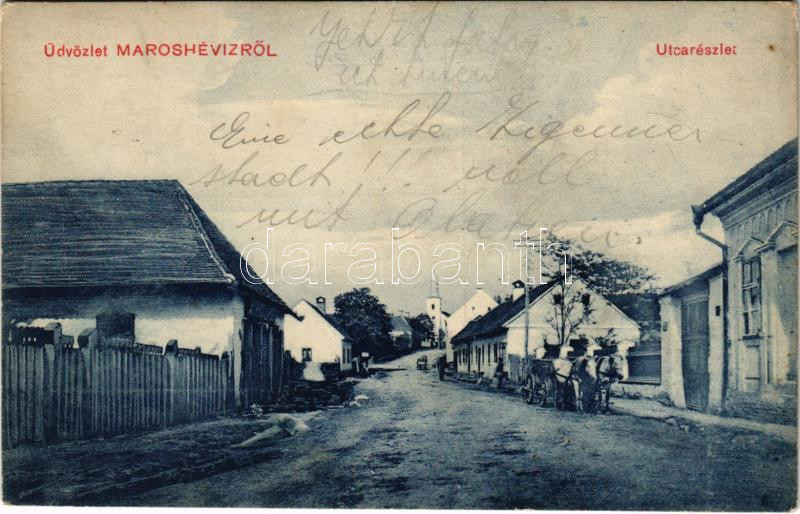 Üdvözlet MAROSHÉVIZRŐL
Utcarészlet
Eine echte Zigeuner
stadt!!! voll
mit
darabanth